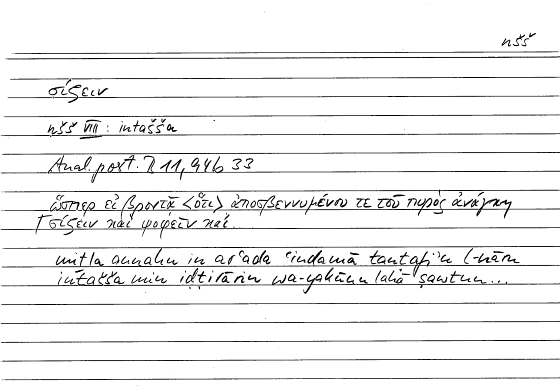 nšš
σίζειν
nšš VIII : intašša
Anal. post. B 11, 94b 33
ὥσπερ εἰ βροντᾷ <ὅτι> ἀποσβεννυμένου τε τοῦ πυρὸς ἀνάγκη
σίζειν καὶ ψοφεῖν καὶ...
mitla annahu in arʿada ʿindamā tantafiʾu l-nāru
intašša min iḍṭirārin wa-yakūnu lahā ṣawtun...